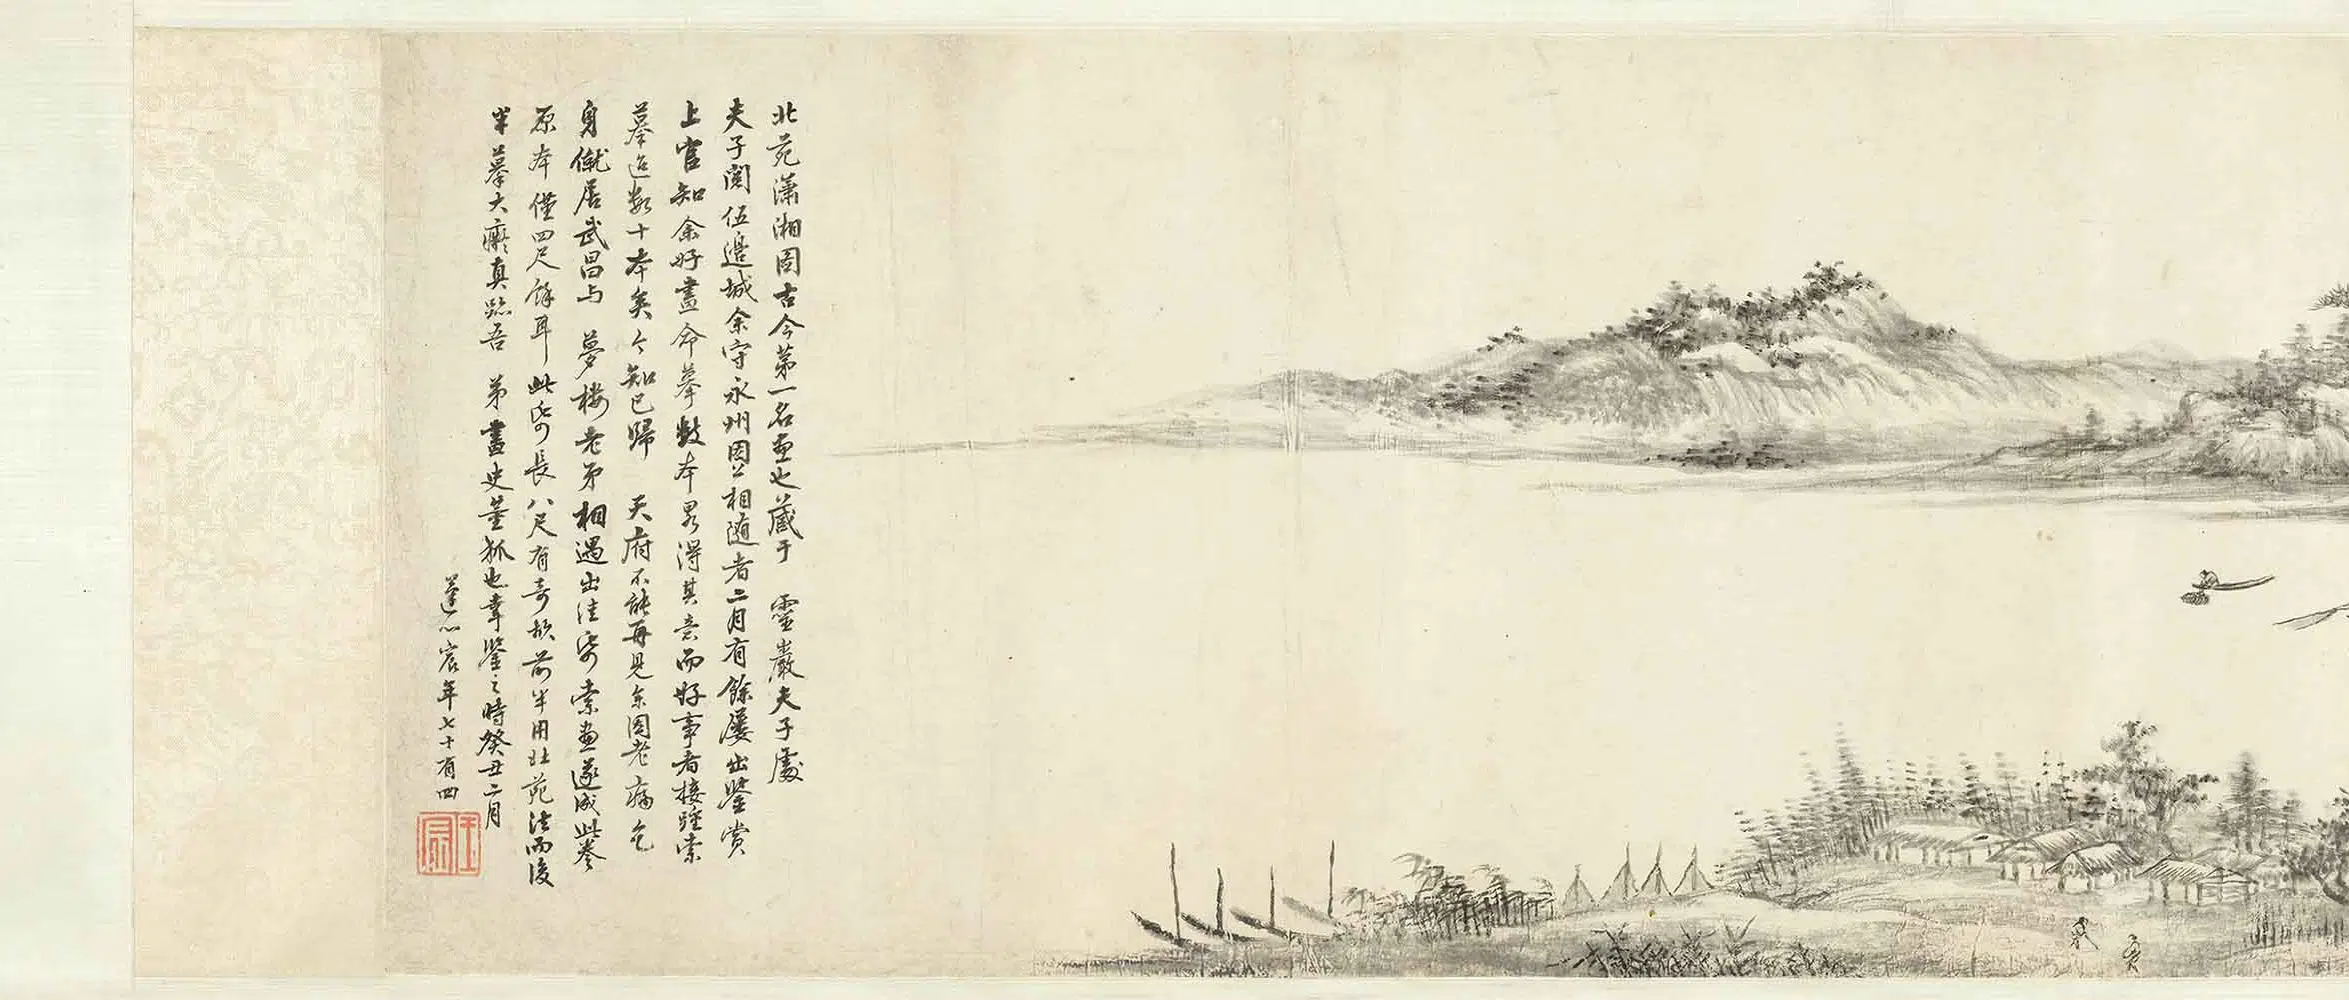 北苑瀟湘圖古今第一名畫也藏于 靈巖夫子處
夫子閱伍邊城余守永州因公相随者二月有餘屢出鑒賞
上官知余好畫命摹數本畧得其意而好事者接踵索
摹迨數十本矣今知已歸 天府不能再見余固老病乞
身僦居武昌与 夢樓老弟相遇出佳帋索畫遂成此卷
原本僅四尺餘耳此帋長八尺有奇故前半用北苑法而後
半摹大癡真跡吾 弟畫史董狐也幸鑒之時癸丑二月
蓬心宸年七十有四
王宸